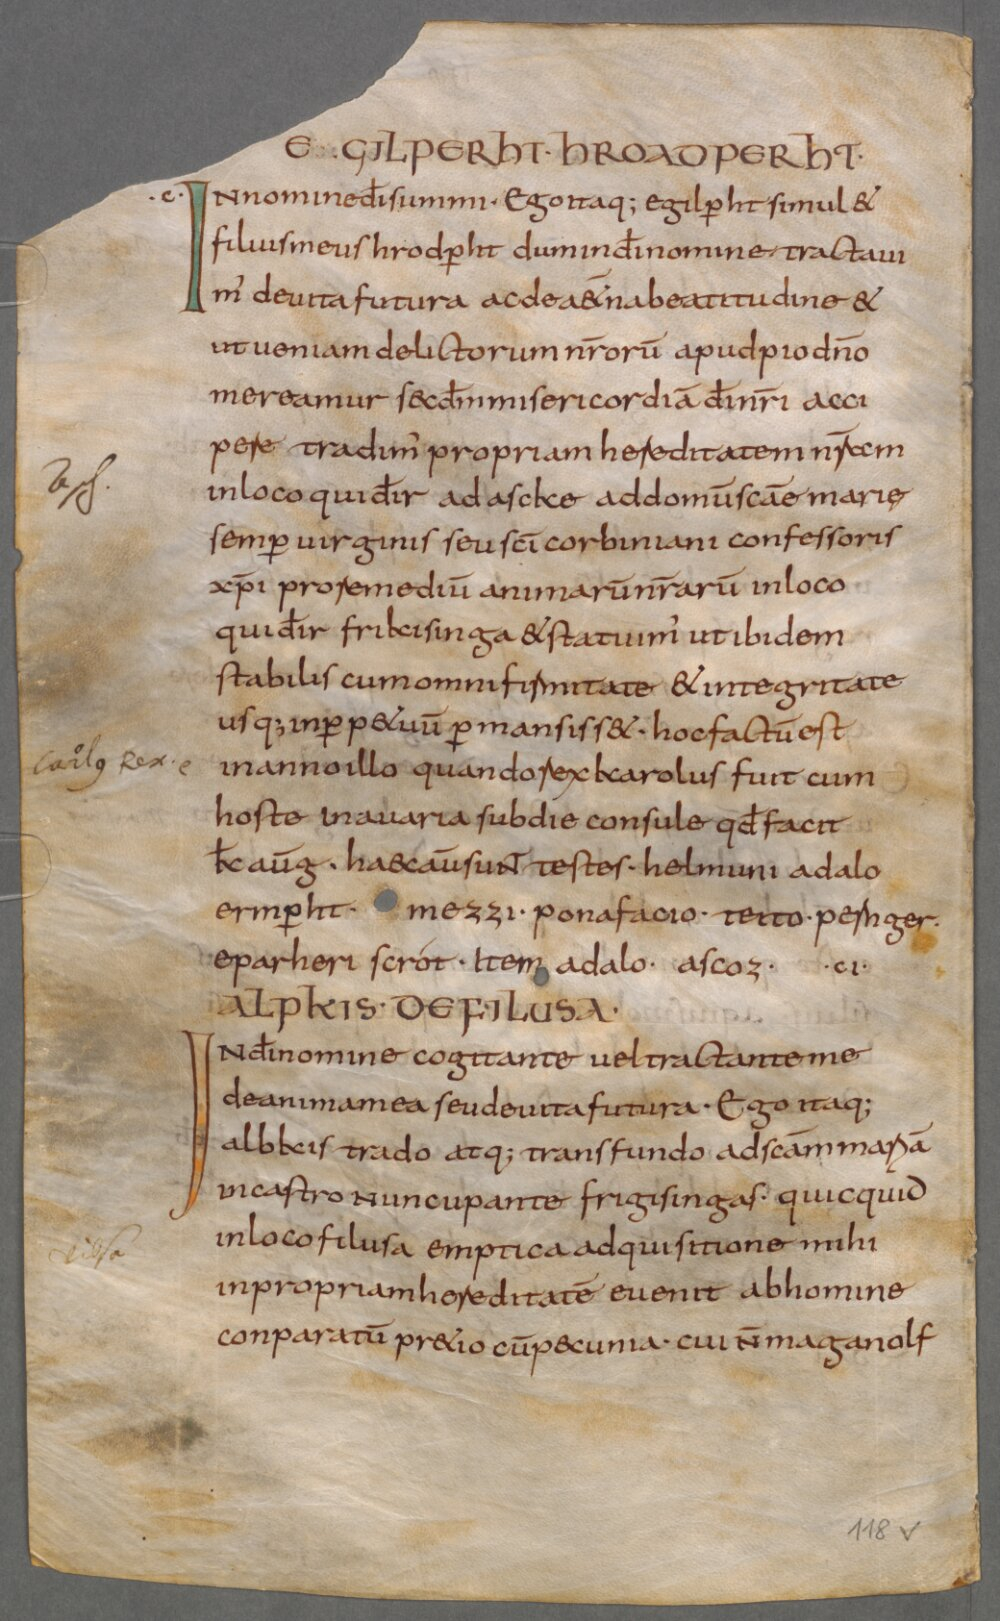 E GILPERHT· HROADPERHT·
·c· IN nomine dī summi· Ego itaq; egilꝑht simul &
filius meus hrodꝑht dum in dī nomine tractaui
m' de uita futura ac de a&̄na beatitudine &
ut ueniam delictorum nr̄orū apud pio dn̄o
mereamur s&cdm̄ misericordiā dī nr̄i acci
pere tradim' propriam hereditatem nr̄am
in loco qui dr̄ ad ascke ad domū scāe marie
semꝑ uirginis seu scī corbiniani confessoris
xp̄i pro remediū animarū nr̄arū in loco
qui dr̄ frikisinga & statuim' ut ibidem
stabilis cum omni firmitate & integritate
usq; inꝑp&uū ꝑmansiss&· hoc factū est
Carolꝰ Rex·
in anno illo quando rex karolus fuit cum
hoste in auaria sub die consule qd̄ facit
kt aūg· haec aūsuN̄ testes· helmuni adalo
ermꝑht· mezzi· ponafacio· teito· peringer·
eparheri scrót· Item adalo· ascoz· ·ci·
ALPKIS· DE FILUSA·
IN dī nomine cogitante uel tractante me
de anima mea seu de uita futura· Ego itaq;
albkis trado atq; transfundo ad scām mariā
in castro nuncupante frigisingas· quicquid
in loco filusa emptica adquisitione mihi
in propriam hereditatē euenit ab homine
conparatū pr&io cū pecunia· cui n̄ maganolf
118 v